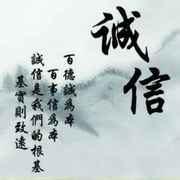 誠信
百德誠為本
百事信為本
誠信是我們的根基
基實則致遠